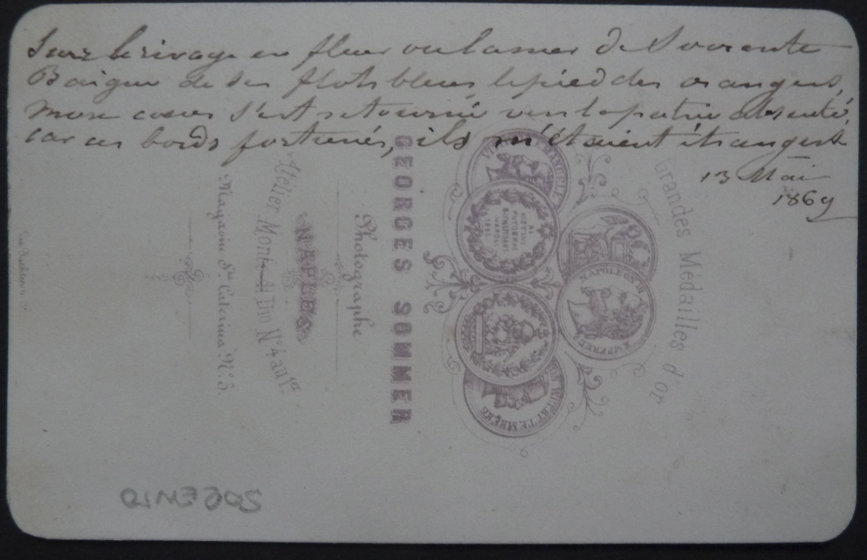 Sur le rivage en fleur ou la mer de Sorrente
Baigne de ses flots bleus le pied des orangers,
mon coeur s'est retourné vers la patrie absente,
car ces bords fortunés, ils m'étaient étrangers
13 Mai
1869
Grandes Médailles d'or
NAPOLEON III
EMPEREUR
GEORGES SOMMER
Photographe
NAPLES
Atelier Monte di Dio N° 4 au 1er
Magasin Sta Caterina N° 5.
SORENTO